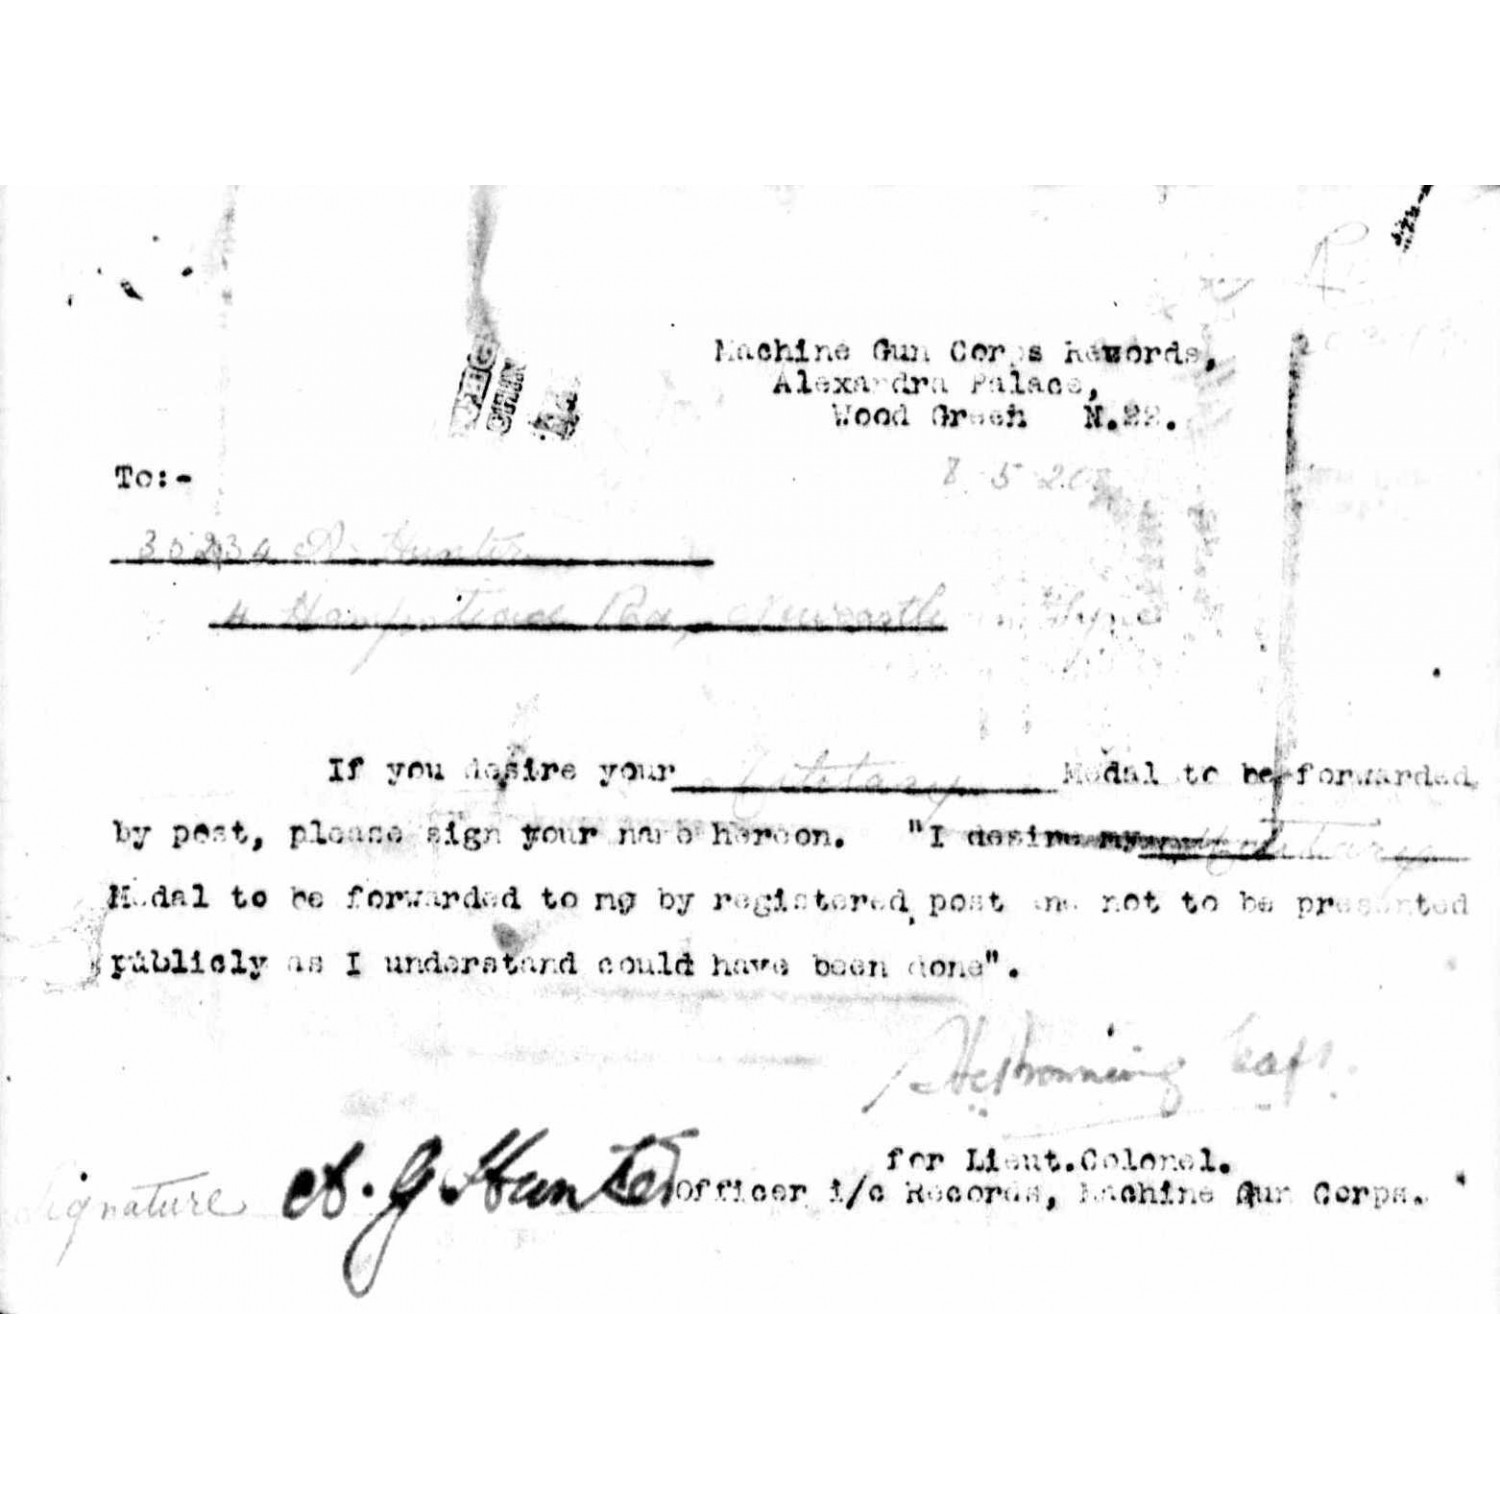 Machine Gun Corps Rewords,
Alexandra Palace,
Wood Green N.22.
8-5-20
To:-
35234 A. Hunter
4 Road, Newcastle on Tyne
If you desire your Military Medal to be forwarded
by post, please sign your name hereon. "I desire my Military
Medal to be forwarded to me by registered post and not to be presented
publicly as I understand could have been done".
Capt.
for Lieut.Colonel.
Signature A. G. Hunter Officer i/c Records, Machine Gun Corps.